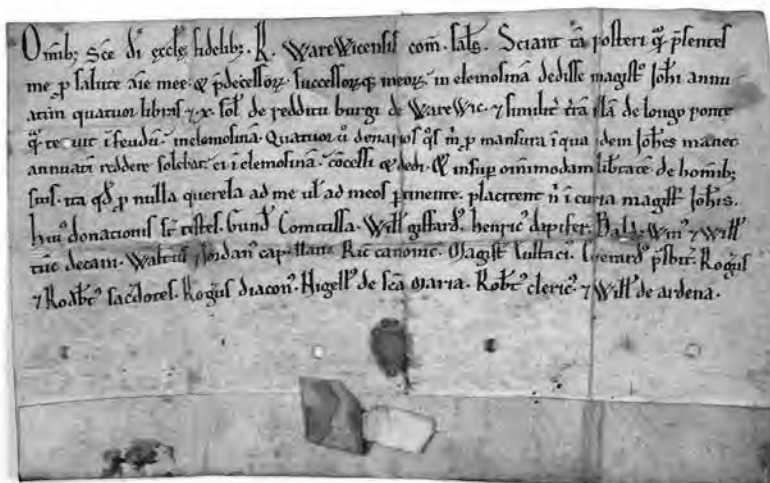 Om̄ib; Sc̄e dī ęccłę fidelib; R. WareWicensis com̄. sałs. Sciant tā posteri q̄ p̄sentes
me p̱ salute aīe mee ⁊ p̄decessoꝝ successoꝝq; meoꝝ in elemosinā dedisse magist̄ Joħi annu
atim quatuor libras ⁊ .x. soł de redditu burgi de WareWic. ⁊ similit̄ t̄rā illā de longo ponte
q̄ tenuit ī feudū. in elemosina. Quatuor ū denarios q̄s m̄ p̱ mansura ī qua idem Joħes manet
annuatī reddere solebat. ei ī elemosinā. c̄cessi ⁊ dedi. Et insup̱ om̄imodam libtatē de homīb;
suis. ita qd̄ p̱ nulla querela ad me uł ad meos p̱tinente. placitent n̄ ī curia magist̄ Joħis.
hui᾽ donationis st̄ testes. Gund̄ Comitissa. Wiłł giffard᾽. henric᾽ dapifer. Wiłł
tūc decani. Walt̄us ⁊ Jordan᾽ capellani. Ric̄ canonic᾽. Magist̄ Eustaci᾽. Gerard᾽ p̄sbit̄. Roḡus
⁊ Rodbt᾽ sac̄dotes. Roḡus diacon᾽. Nigell᾽ de sc̄a Maria. Robt᾽ cleric᾽. ⁊ Wiłł de ardena.